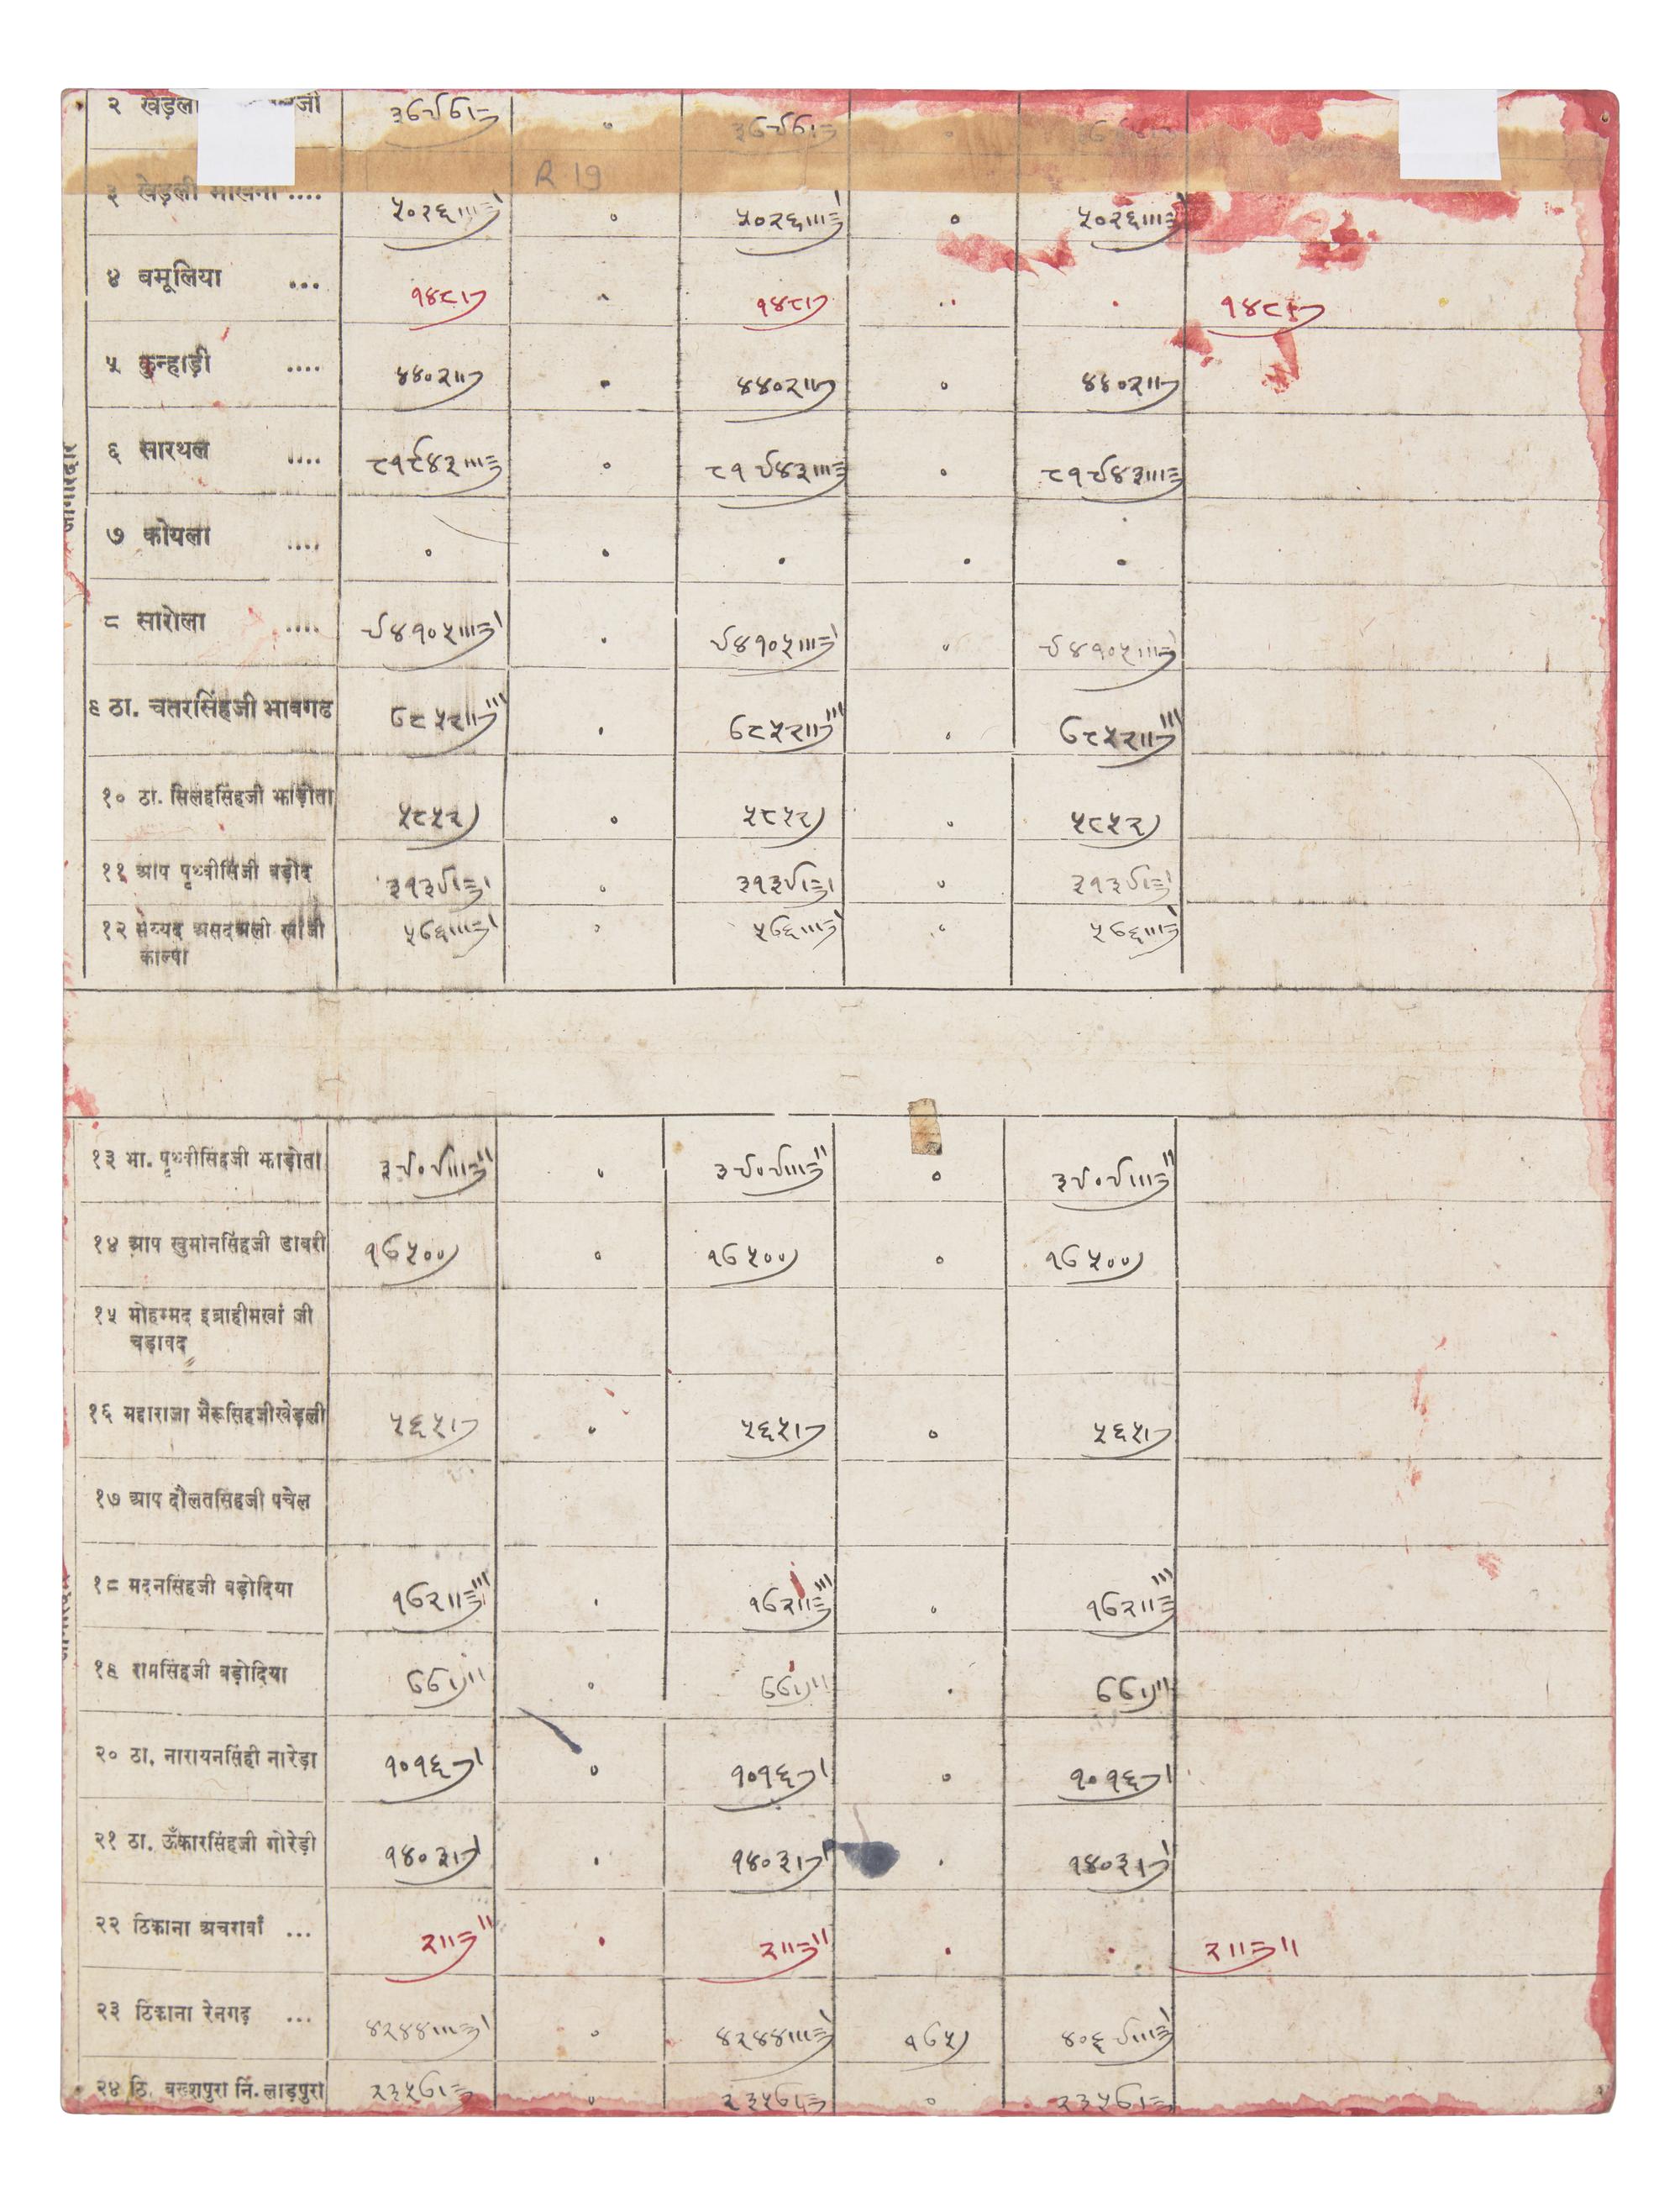 २ खेड़ला जी ० ०
R 19
३ खेड़ली ....  ५०२६॥।⋽। ० ५०२६॥।⋽। ० ५०२६॥।⋽।
४ बमूलिया ... १४८।⁠) ० १४८।) ० ० १४८।)
५ कुन्हाड़ी .... ४४०२॥) ० ४४०२॥) ० ४४०२॥)
६ सारथल .... ८१९४३॥।⋽ ० ८१९४३॥।⋽ ० ८१९४३॥।⋽
७ कोयला .... ० ० ० ० ०
८ सारोला .... ९४१०५॥।⋽। ० ९४१०५॥।⋽। ० ९४१०५॥।⋽।
९ ठा. चतरसिंहजी भावगढ ७८५२॥)॥। ० ७८५२॥)॥। ० ७८५२॥)॥।
१० ठा. सिलहसिंहजी झाड़ोता ५८५२) ० ५८५२) ० ५८५२)
११ आप पृथ्वीसिंजी बड़ोद ३१३९।⋽। ० ३१३९।⋽। ० ३१३९।⋽।
१२ सैय्यद असदअली खांजी ५७६॥।⋽। ० ५७६॥।⋽। ० ५७६॥।⋽।
काल्पा
१३ भा. पृथ्वीसिंहजी झाड़ोता ३९०९॥।⋽॥ ० ३९०९॥।⋽॥ ० ३९०९॥।⋽॥
१४ आप खुमानसिंहजी डाबरी १७५००) ० १७५००) ० १७५००)
१५ मोहम्मद इब्राहीमखां जी
चड़ावद
१६ महाराजा भैरूसिंहजीखेड़ली ५६५।) ० ५६५।) ० ५६५।)
१७ आप दौलतसिंहजी पचेल
१८ मदनसिंहजी बड़ोदिया १७२॥⋽॥। ० १७२॥⋽॥। ० १७२॥⋽॥।
१९ रामसिंहजी बड़ोदिया ७७।)॥ ० ७७।)॥ ० ७७।)॥
२० ठा. नारायनसिंही नारेड़ा १०१६)। ० १०१६)। ० १०१६)।
२१ ठा. ऊँकारसिंहजी गोरेड़ी १४०३।)। ० १४०३।)। ० १४०३।)।
२२ ठिकाना अचरावाँ ... २॥⋽॥ ० २॥⋽॥ ० ० २॥⋽॥
२३ ठिकाना रेनगढ़ ... ४२४४॥।⋽। ० ४२४४॥।⋽। १७५) ४०६९॥।⋽।
२४ ठि. बख्शपुरा नि. लाड़पुरा २३५७।⋽ ० २३५७।⋽ ० २३५७।⋽